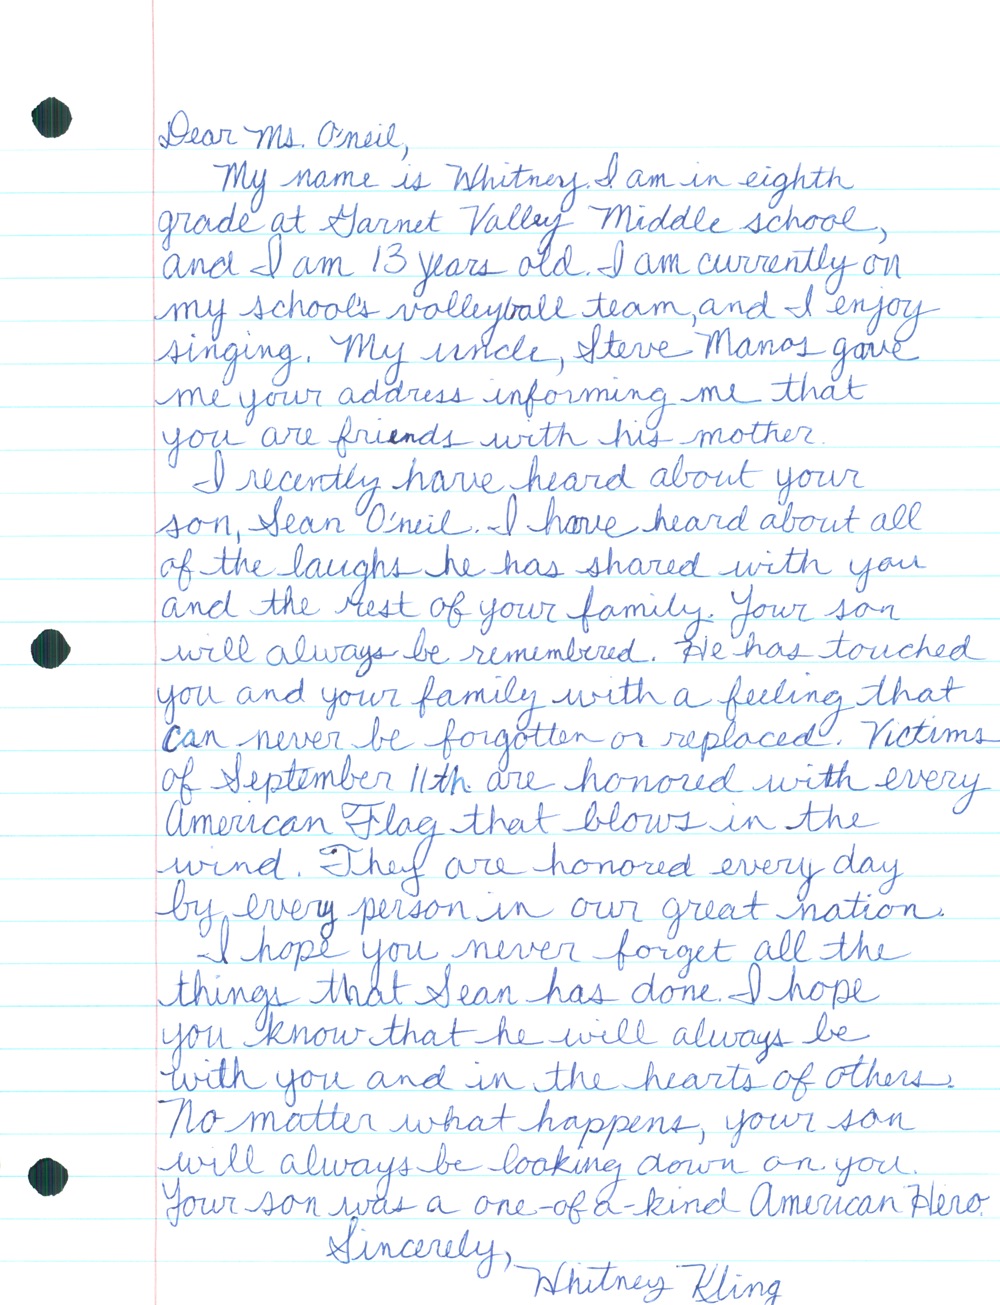 Dear Ms. O'neil,
My name is Whitney. I am in eighth
grade at Garnet Valley Middle school,
and I am 13 years old. I am currently on
my school's volleyball team, and I enjoy
singing. My uncle, Steve Manos gave
me your address informing me that
you are friends with his mother.
I recently have heard about your
son, Sean O'neil. I have heard about all
of the laughs he has shared with you
and the rest of your family. Your son
will always be remembered. He has touched
you and your family with a feeling that
can never be forgotten or replaced. Victims
of September 11th are honored with every
American Flag that blows in the
wind. They are honored every day
by every person in our great nation.
I hope you never forget all the
things that Sean has done. I hope
you know that he will always be
with you and in the hearts of others.
No matter what happens, your son
will always be looking down on you.
Your son was a one-of-a-kind American Hero.
Sincerely,
Whitney Kling